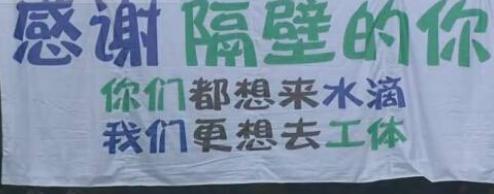 感谢隔壁的你
你们都想来水滴
我们更想去工体